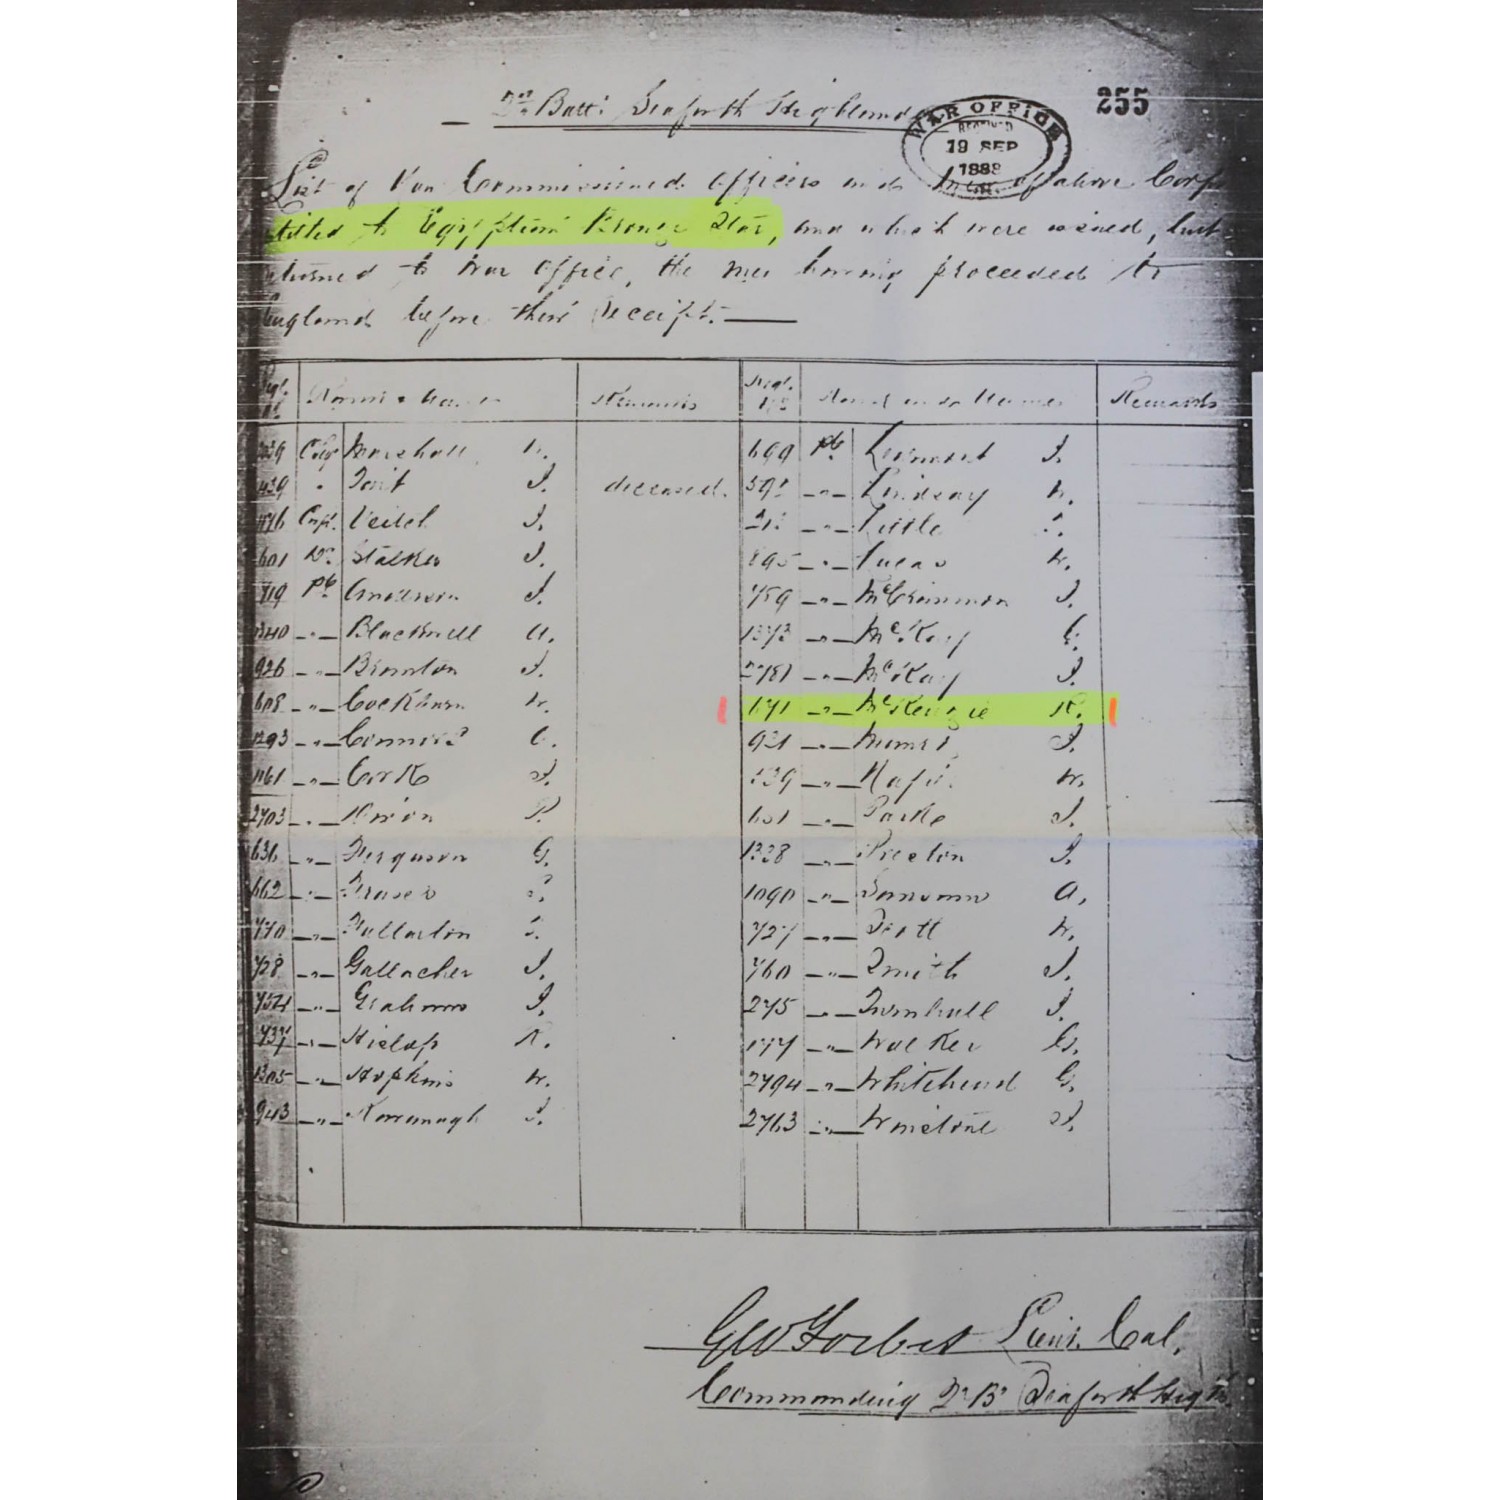 255
Batt. Seaforth Highland
WAR OFFICE
RECEIVED
19 SEP
1888
List of Non Commissioned Officers and Men of above Corps
titled to Egyptian Bronze Star, and which were issued, but
eturned to War Office, the men having proceeded to
England before their receipt.
Regl. No. Remarks Regl. No. Rank and Names Remarks
Marshall W. 699 Pte. Learmont J.
Tait J. deceased. Lindsay W.
Corpl. Veitch J. Little
601 Dr. Stalker J. 895 Lucas W.
719 Pte. Anderson J. 759 McCrimmon J.
1340 Blackwell A. 1373 McKay G.
926 Brunton J. 2781 McKay J.
608 Cockburn W. 1671 McKenzie R.
1293 Connors C. 921 J.
1161 Cork J. 539 Napier W.
2703 P. 651 Parke J.
636 Ferguson G. 1328 Preston J.
662 Fraser 1090 Sansom A.
770 Fullarton 727 Scott W.
728 Gallacher J. 760 Smith J.
Grahams J. 275 Turnbull J.
737 Hislop R. 177 Walker G.
1305 Hopkins W. 2794 Whitehead G.
943 Kavanagh J. 2763 J.
GW Forbes Lieut. Col.
Commanding 2n Bn Seaforth Highrs